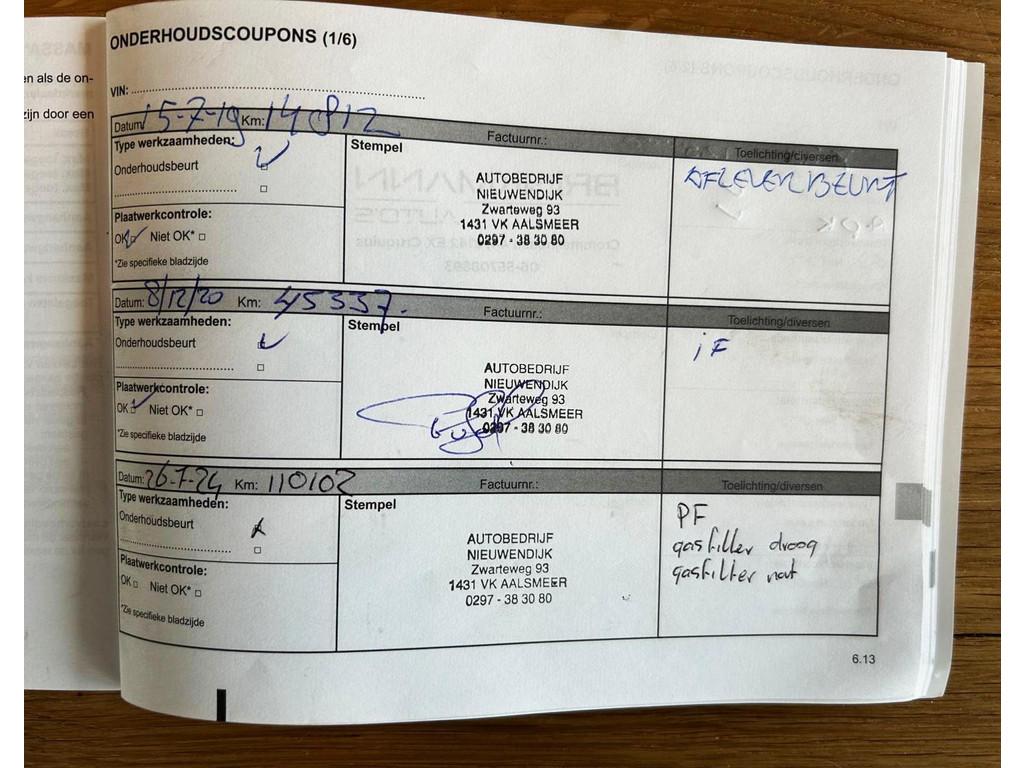 en als de on-
zijn door een
ONDERHOUDSCOUPONS (1/6)
VIN:
Datum: 15-7-19 Km: 14812 Factuurnr.: Toelichting/diversen
Type werkzaamheden: Stempel
Onderhoudsbeurt
AFLEVERBEURT
AUTOBEDRIJF
NIEUWENDIJK
Zwarteweg 93
1431 VK AALSMEER
0297 - 38 30 80
Plaatwerkcontrole:
OK Niet OK*
*Zie specifieke bladzijde
Datum: 8/12/20 Km: 45337. Factuurnr.: Toelichting/diversen
Type werkzaamheden: Stempel
Onderhoudsbeurt
iF
AUTOBEDRIJF
NIEUWENDIJK
Zwarteweg 93
1431 VK AALSMEER
0297 - 38 30 80
Plaatwerkcontrole:
OK Niet OK*
*Zie specifieke bladzijde
Datum: 26-7-24 Km: 110102 Factuurnr.: Toelichting/diversen
Type werkzaamheden: Stempel
Onderhoudsbeurt
PF
gasfilter droog
gasfilter nat
AUTOBEDRIJF
NIEUWENDIJK
Zwarteweg 93
1431 VK AALSMEER
0297 - 38 30 80
Plaatwerkcontrole:
OK Niet OK*
*Zie specifieke bladzijde
6.13